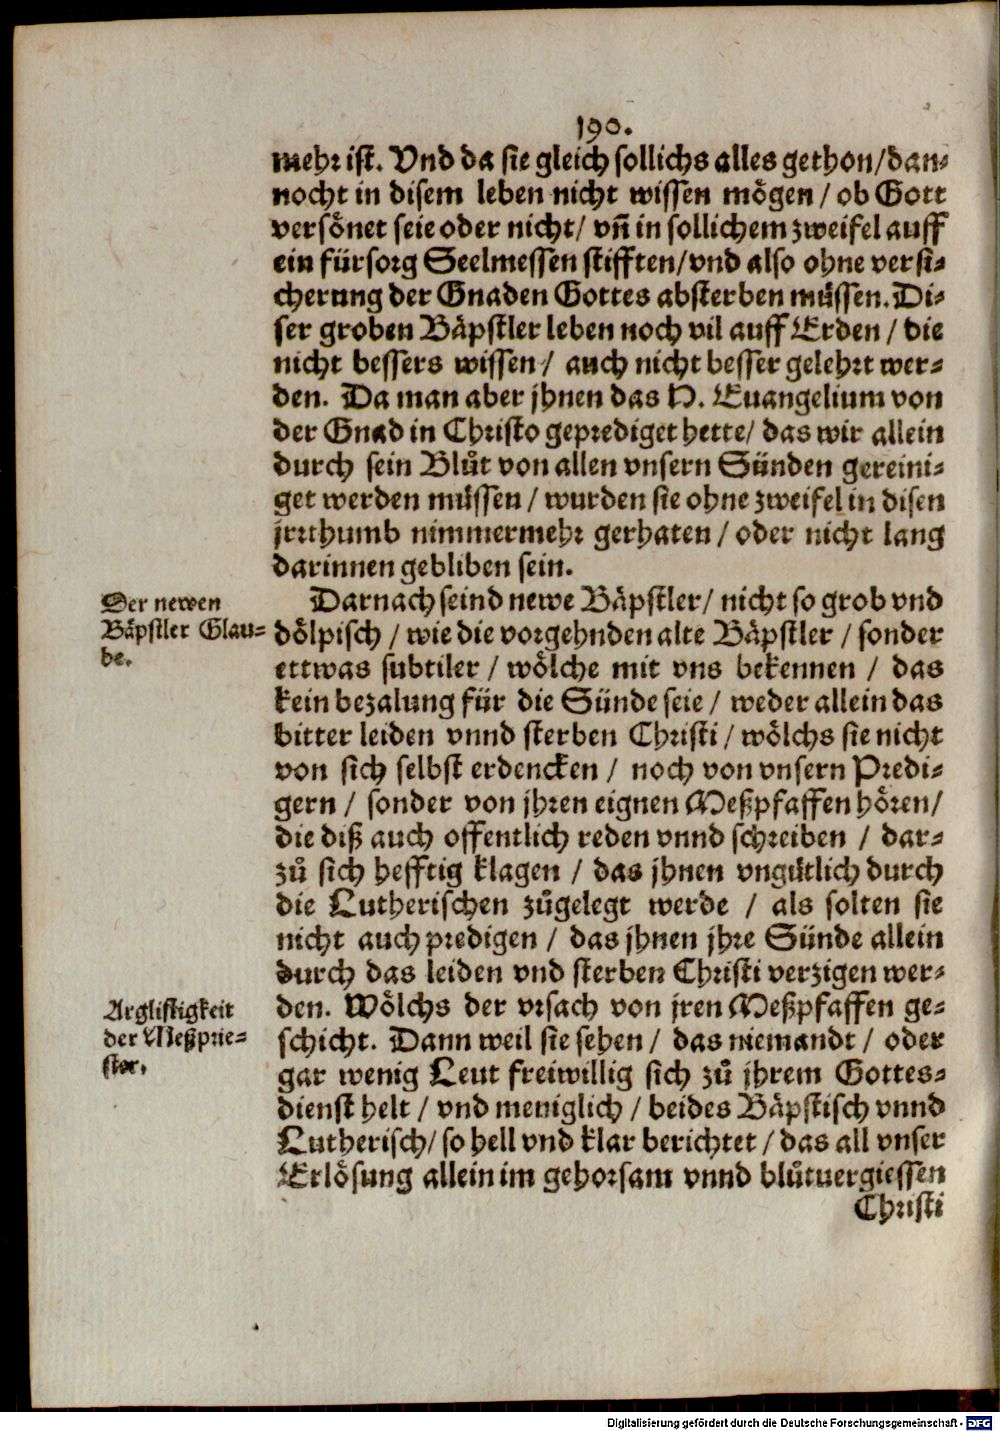 190.
mehr ist. Vnd da sie gleich sollichs alles gethon/dan-
nocht in disem leben nicht wissen mögen / ob Gott
versönet seie oder nicht/ vñ in sollichem zweifel auff
ein fürsorg Seelmessen stifften/vnd also ohne versi-
cherung der Gnaden Gottes absterben müssen. Di-
ser groben Bäpstler leben noch vil auff Erden / die
nicht bessers wissen / auch nicht besser gelehrt wer-
den. Da man aber jhnen das H. Euangelium von
der Gnad in Christo geprediget hette/ das wir allein
durch sein Blůt von allen vnsern Sünden gereini-
get werden müssen / wurden sie ohne zweifel in disen
jrrthumb nimmermehr gerhaten / oder nicht lang
darinnen gebliben sein.
Der newen
Bäpstler Glau-
be.
Darnach seind newe Bäpstler/ nicht so grob vnd
dölpisch / wie die vorgehnden alte Bäpstler / sonder
ettwas subtiler / wölche mit vns bekennen / das
kein bezalung für die Sünde seie / weder allein das
bitter leiden vnnd sterben Christi / wölchs sie nicht
von sich selbst erdencken / noch von vnsern Predi-
gern / sonder von jhren eignen Meßpfaffen hören/
die diß auch offentlich reden vnnd schreiben / dar-
zů sich hefftig klagen / das jhnen vngütlich durch
die Lutherischen zůgelegt werde / als solten sie
nicht auch predigen / das jhnen jhre Sünde allein
durch das leiden vnd sterben Christi verzigen wer-
Arglistigkeit
der Meßprie-
ster.
den. Wölchs der vrsach von jren Meßpfaffen ge-
schicht. Dann weil sie sehen / das niemandt / oder
gar wenig Leut freiwillig sich zů jhrem Gottes-
dienst helt / vnd meniglich / beides Bäpstisch vnnd
Lutherisch/ so hell vnd klar berichtet / das all vnser
Erlösung allein im gehorsam vnnd blůtuergiessen
Christi
Digitalisierung gefördert durch die Deutsche Forschungsgemeinschaft - DFG